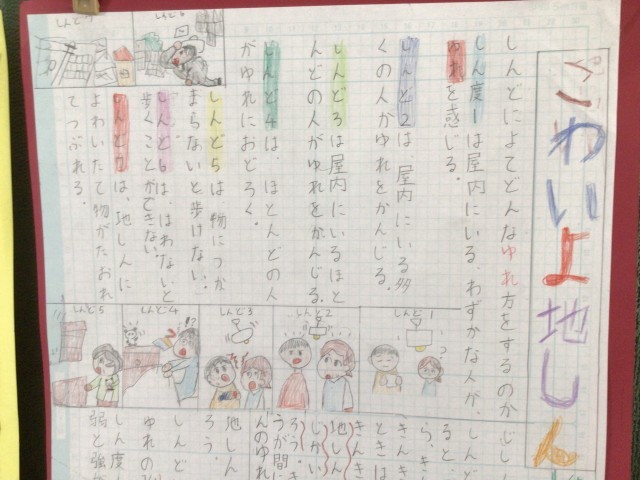 こわいよ地しん
しんどによてどんなゆれ方をするのか
しん度1は屋内にいる、わずかな人が、
ゆれを感じる。
しんど2は、屋内にいる多
くの人がゆれをかんじる。
しんど3は屋内にいるほと
んどの人がゆれをかんじる。
しんど4は、ほとんどの人
がゆれにおどろく。
しんど5は物につか
まらないと歩けない。
しんど6は、はわないと
歩くことができない。
しんど7は、地しんに
よわいたて物がたおれ
てつぶれる。
しんど6
しんど7
しんど1
しんど2
しんど3
しんど4
しんど5
しんど
ると、
ら、き
きんき
ときは
きんき
地しん
じかい
ろう。き
うが間に
んのゆれ
地しん
ろう。
しんど
ゆれの強
しん度
弱と強